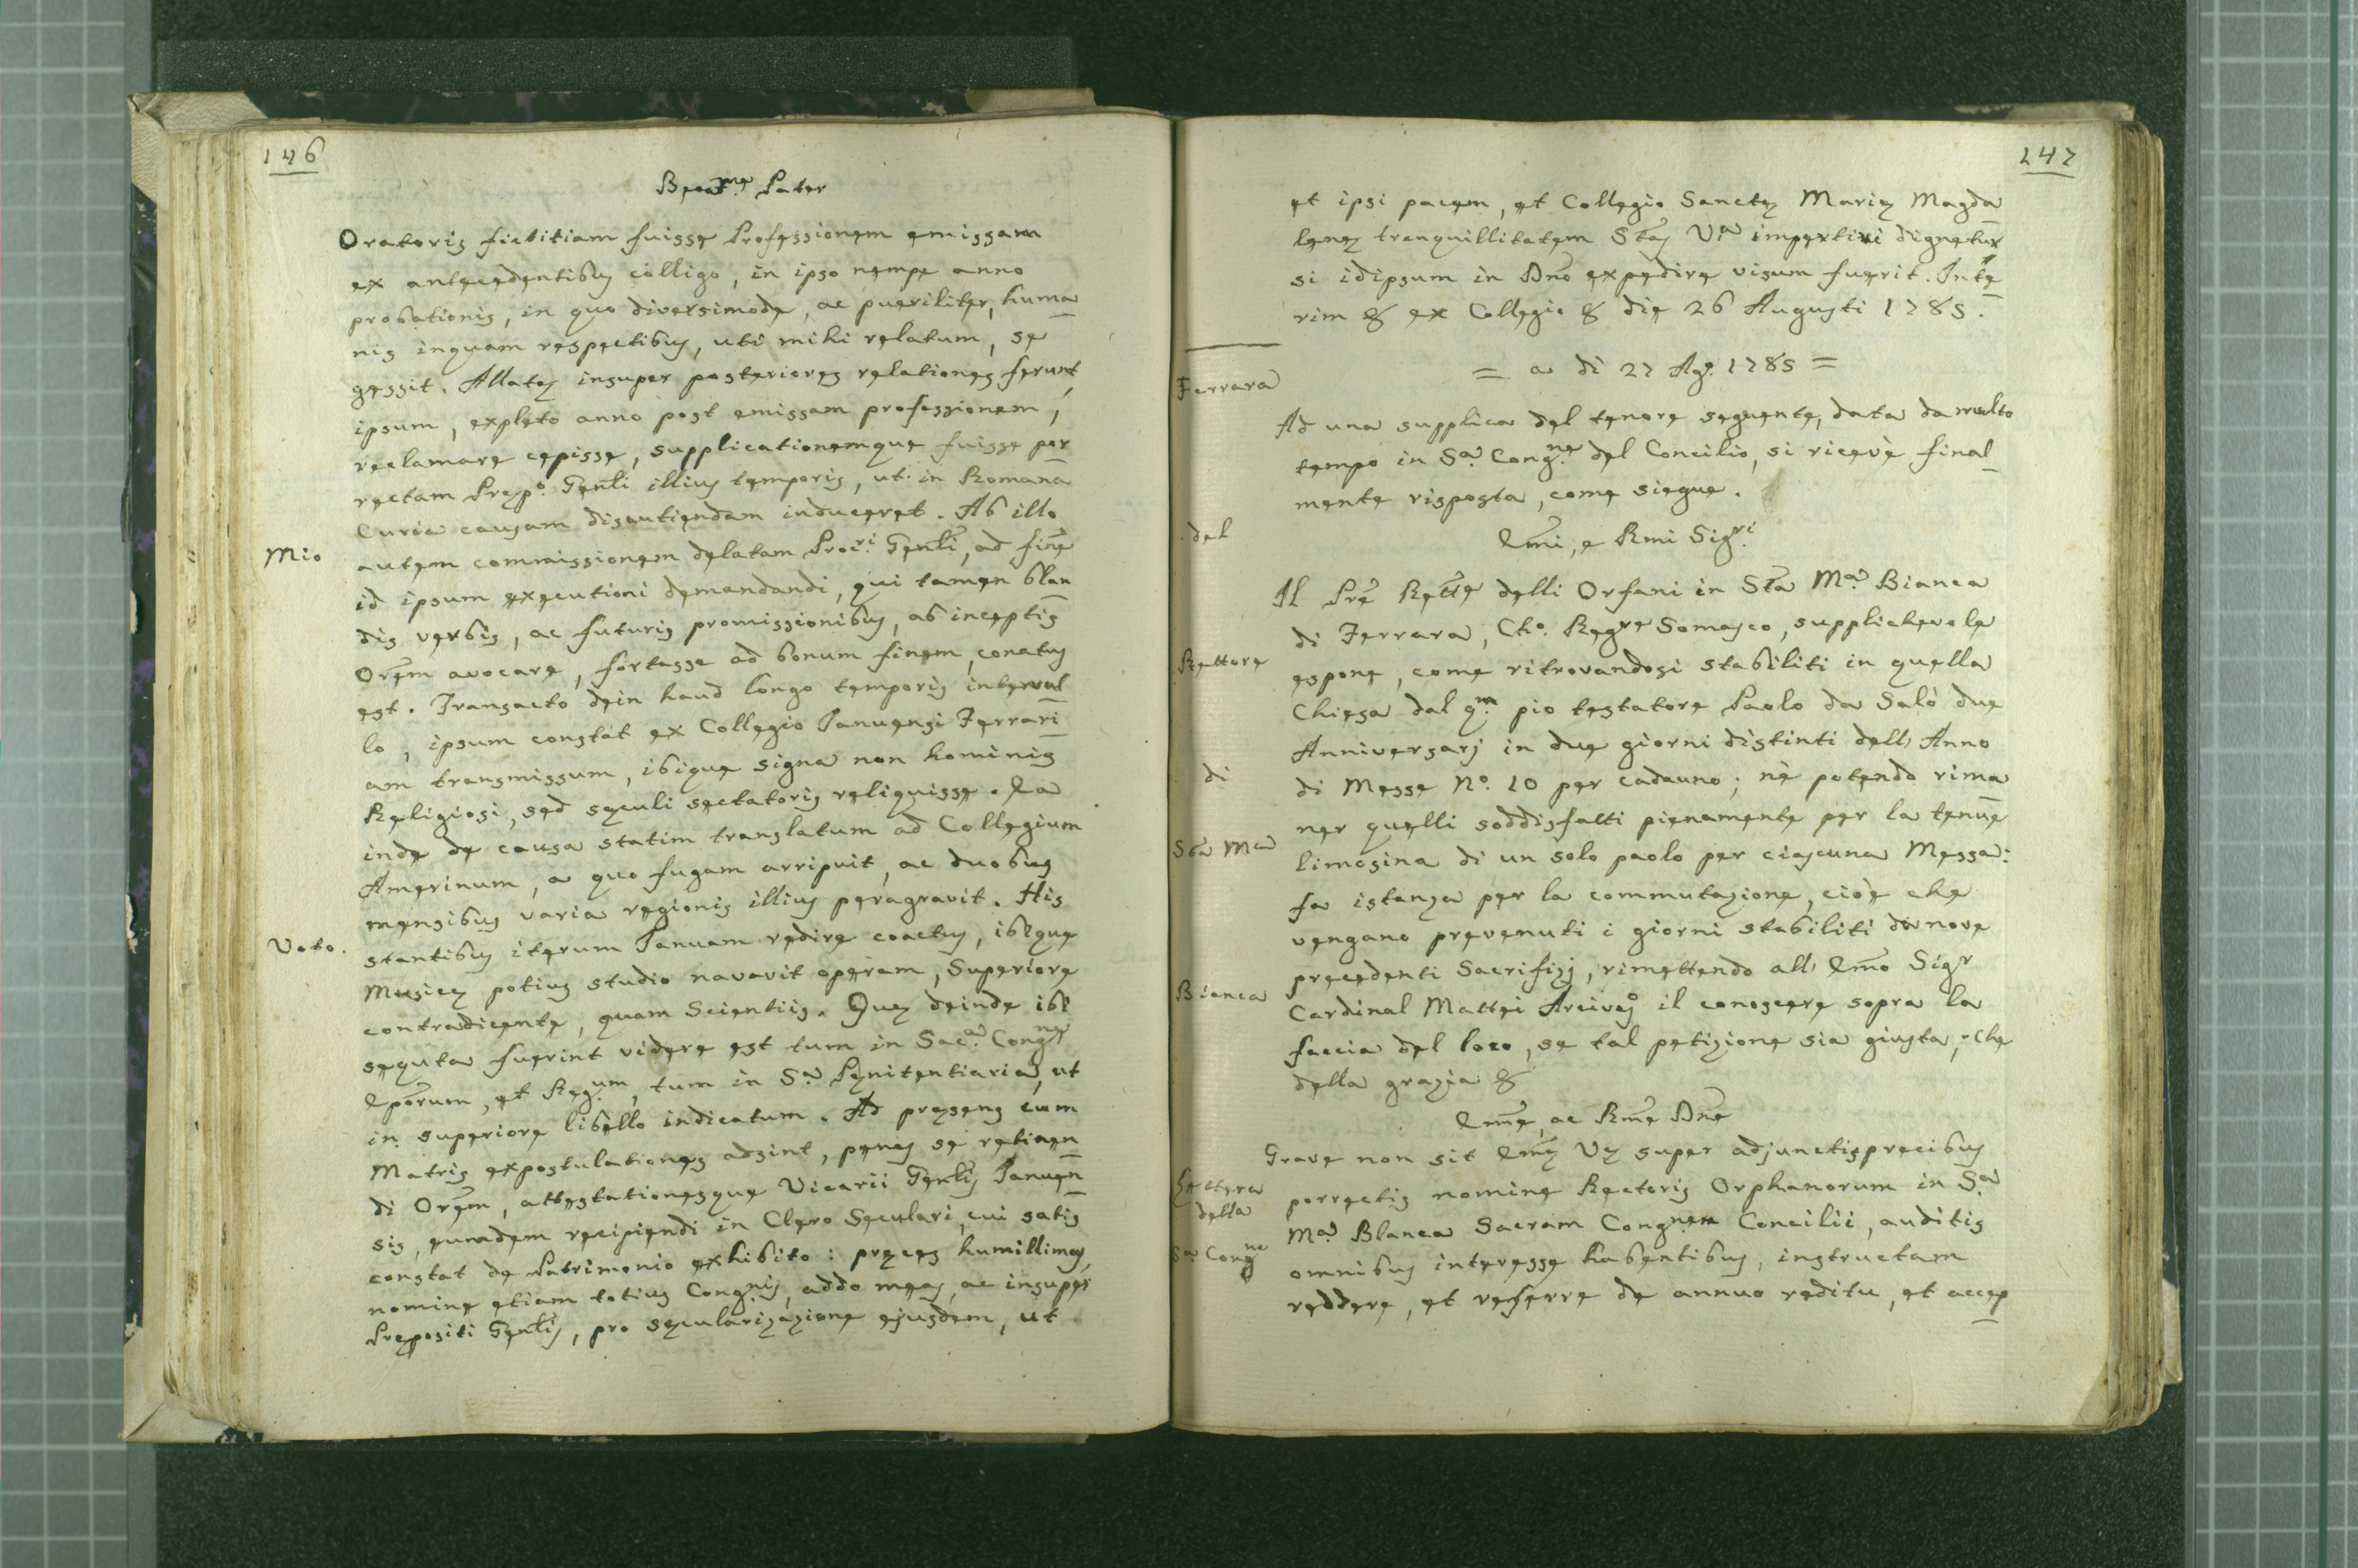 146
Beatme Pater
Oratoris fictitiam fuisse Professionem emissam
ex antecedentibus colligo, in ipso nempe anno
probationis, in quo diversimode, ac pueriliter, huma
nis inquam respectibus, uti mihi relatum, se
gessit. Allatæ insuper posteriores relationes ferunt,
ipsum, expleto anno post emissam professionem,
reclamare cepisse, supplicationemque fuisse por
rectam Præpo. Genli illius temporis, ut in Romana
Curia causam discutiendam induceret. Ab illo
Mio
autem commissionem delatam Procri. Genli, ad fine
id ipsum executioni demandandi, qui tamen blan
dis verbis, ac futuris promissionibus, ab inceptis
Orem avocare, fortasse ad bonum finem, conatus
est. Transacto dein haud longo temporis interval
lo, ipsum constat ex Collegio Januensi Ferrari
am transmissum, ibique signa non hominis
Religiosi, sed sæculi sectatoris reliquisse. Ea
inde de causa statim translatum ad Collegium
Amerinum, a quo fugam arripuit, ac duobus
mensibus varia regionis illius peragravit. His
Voto.
stantibus iterum Januam redire coactus, ibique
Musicæ potius studio navavit operam, Superiore
contradicente, quam Scientiis. Quæ deinde ibi
sequta fuerint videre est tum in Saca. Congne
Eporum, et Regum, tum in Sa. Pænitentiaria, ut
in superiore libello indicatum. Ad præsens cum
Matris expostulationes adsint, penes se retinen
di Orem, attestationesque Vicarii Genlis Januen
sis, eumdem recipiendi in Clero Seculari, cui satis
constat de Patrimonio exhibito: preces humillimas,
nomine etiam totius Congnis, addo meas, ac insuper
Præpositi Genlis, pro sæcularizazione ejusdem, ut
147
et ipsi pacem, et Collegio Sanctæ Mariæ Magda
lenæ tranquillitatem Stas Vra impertiri dignetur
si idipsum in Dno expedire visum fuerit. Inte
rim & ex Collegio & die 26 Augusti 1785.
= a di 27 Ago. 1785 =
Ferrara
Ad una supplica del tenore seguente, data da molto
tempo in Sa. Congne del Concilio, si ricevè final
mente risposta, come siegue.
del
Emi, e Rmi Sigri
Il Pre Rettre delli Orfani in Sta Ma Bianca
di Ferrara, Cho. Regre Somasco, supplichevole
Rettore
espone, come ritrovandosi stabiliti in quella
Chiesa dal qm pio testatore Paolo da Salò due
Anniversarj in due giorni distinti dell' Anno
di
di Messe No. 10 per cadauno; nè potendo rima
ner quelli soddisfatti pienamente per la tenue
Sta Ma
limosina di un solo paolo per ciascuna Messa:
fa istanza per la commutazione, cioè che
vengano prevenuti i giorni stabiliti da nove
precedenti Sacrifizj, rimettendo all' Emo Sigr
Bianca
Cardinal Mattei Arcivo il conoscere sopra la
faccia del loco, se tal petizione sia giusta; Che
della grazia &
Eme, ac Rme Dne
Grave non sit Emæ Væ super adjunctis precibus
Lettera
della
porrectis nomine Rectoris Orphanorum in Sa
Ma. Blanca Sacram Congnem Concilii, auditis
Sa Congne
omnibus interesse habentibus, instructam
reddere, et referre de annuo reditu, et accep